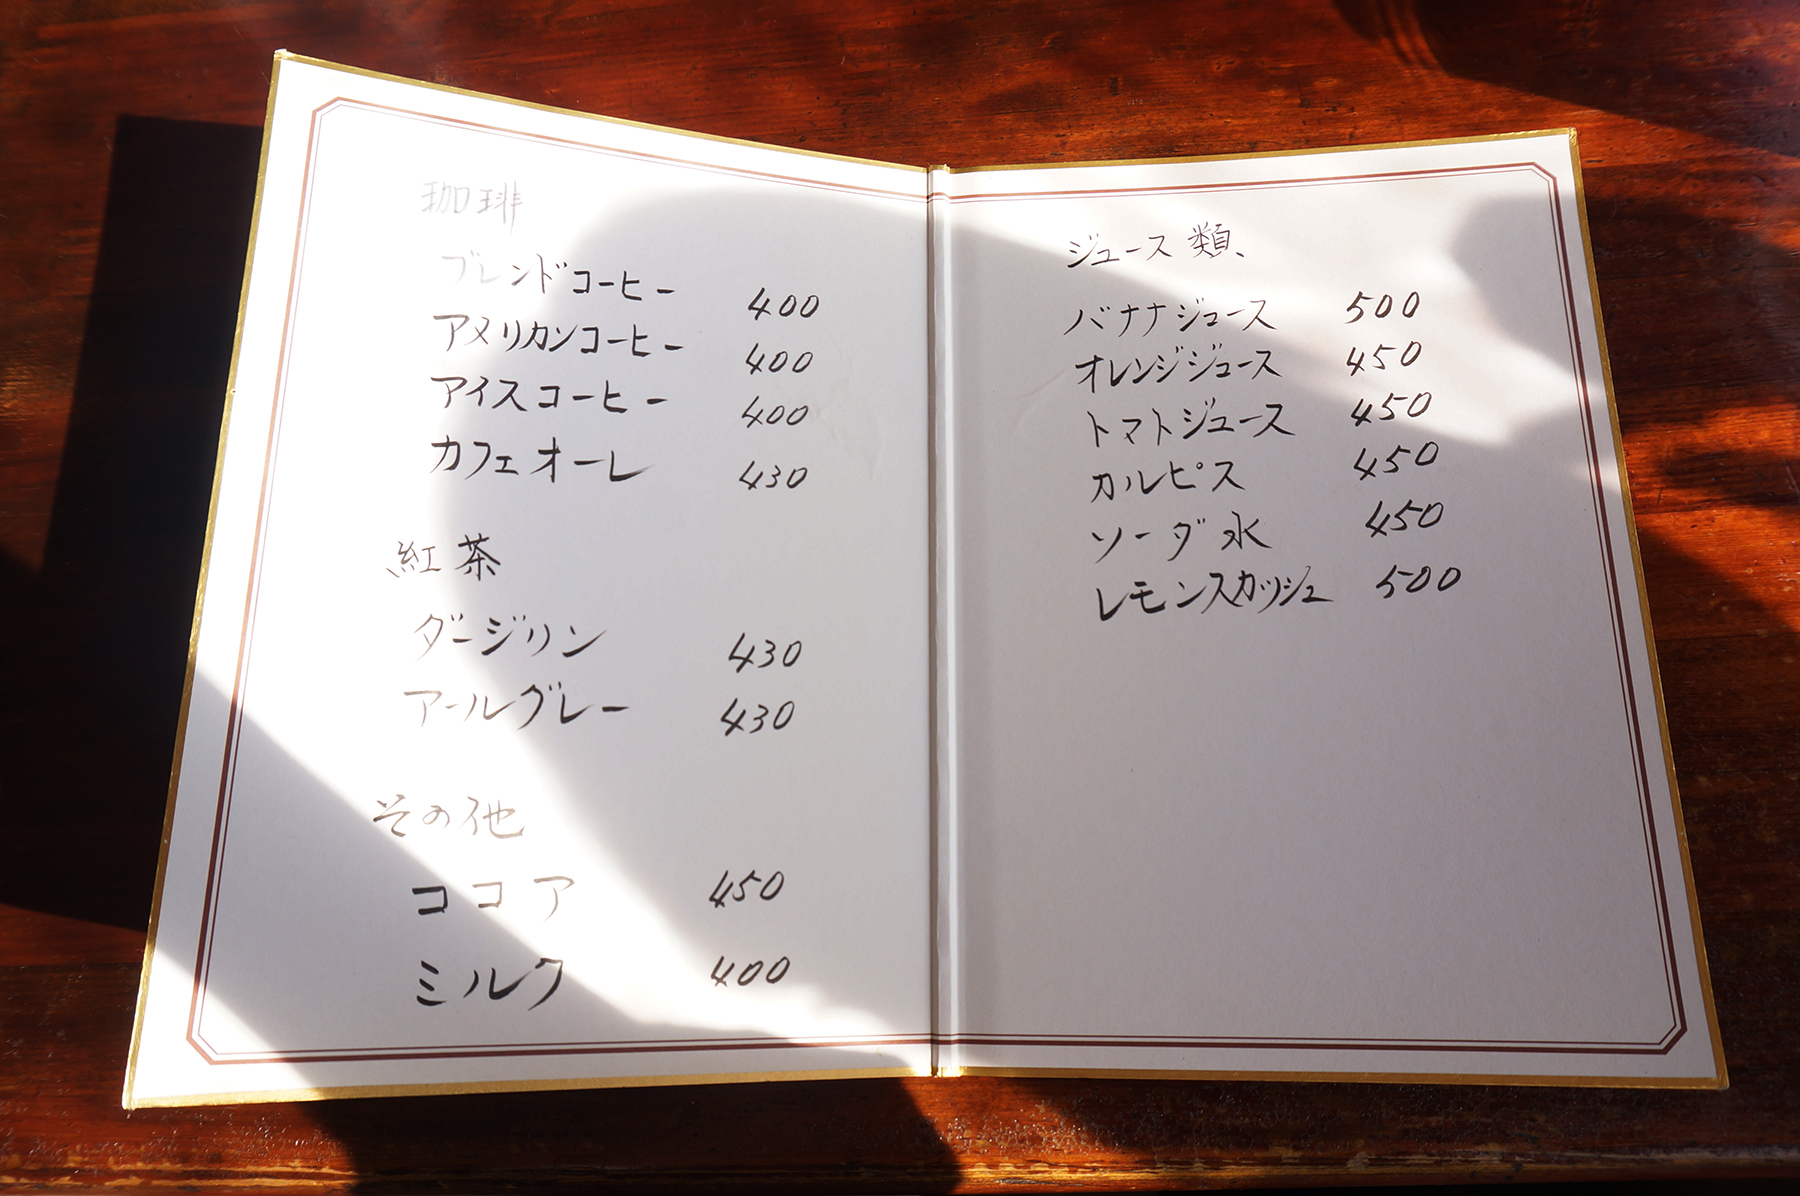 珈琲
ブレンドコーヒー 400
アメリカンコーヒー 400
アイスコーヒー 400
カフェオーレ 430
紅茶
ダージリン 430
アールグレー 430
その他
ココア 450
ミルク 400
ジュース類、
バナナジュース 500
オレンジジュース 450
トマトジュース 450
カルピス 450
ソーダ水 450
レモンスカッシュ 500